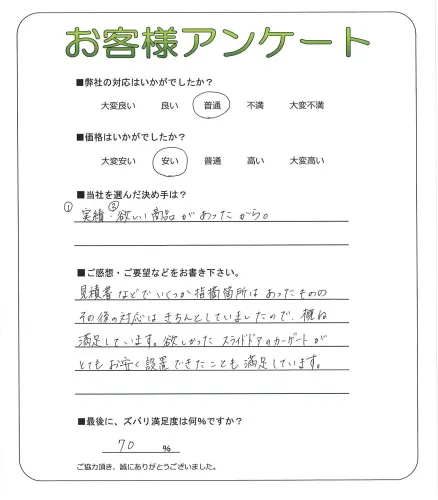 お客様アンケート
■弊社の対応はいかがでしたか？
大変良い 良い 普通 不満 大変不満
■価格はいかがでしたか？
大変安い 安い 普通 高い 大変高い
■当社を選んだ決め手は？
① 実績・②欲しい商品があったから。
■ご感想・ご要望などをお書き下さい。
見積書などでいくつか指摘箇所はあったものの
その後の対応はきちんとしていましたので、概ね
満足しています。欲しかったスライドドアのカーゲートが
とてもお安く設置できたことも満足しています。
■最後に、ズバリ満足度は何%ですか？
70 %
ご協力頂き、誠にありがとうございました。